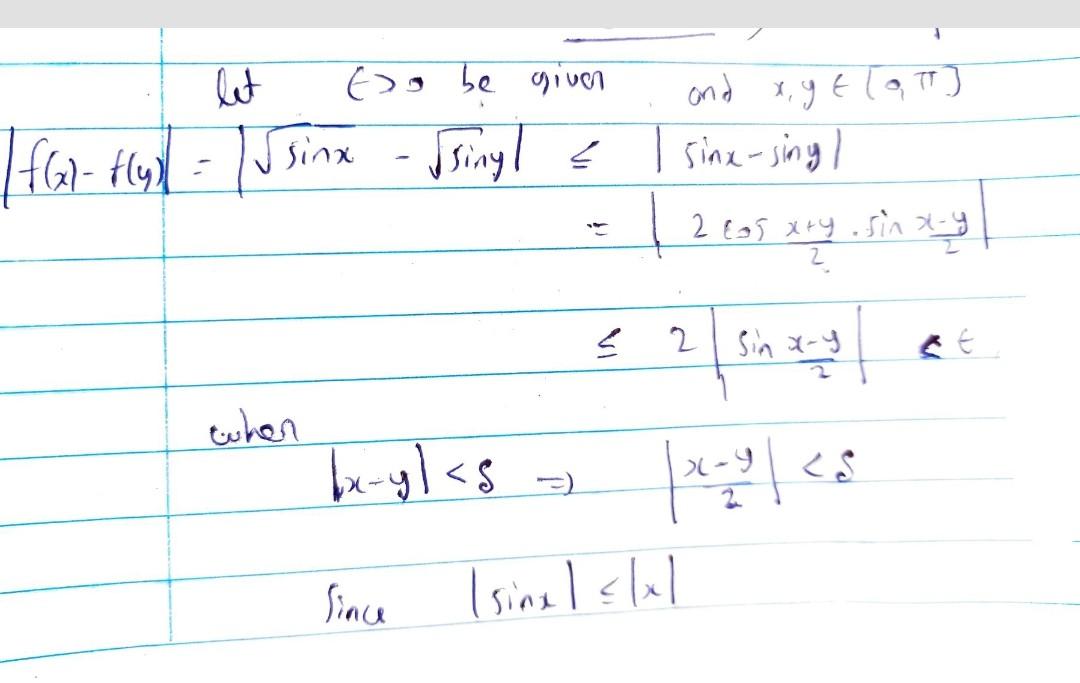 let ϵ>0 be given and x, y ∈ [0, π]
|f(x) - f(y)| = |√sinx - √siny| ≤ |sinx - siny|
= |2 cos x+y/2 . sin x-y/2|
≤ 2 |sin x-y/2| < ϵ
when
|x-y| < δ ⇒ |x-y/2| < δ
Since |sinx| ≤ |x|